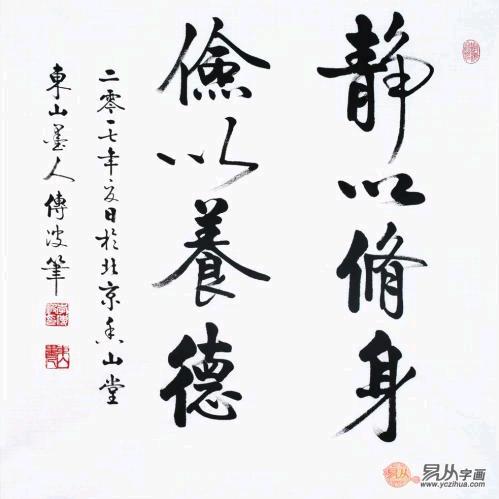 靜以脩身
儉以養德
二零一七年夏日於北京香山堂
東山墨人傳波筆
易从字画
www.yczihua.com